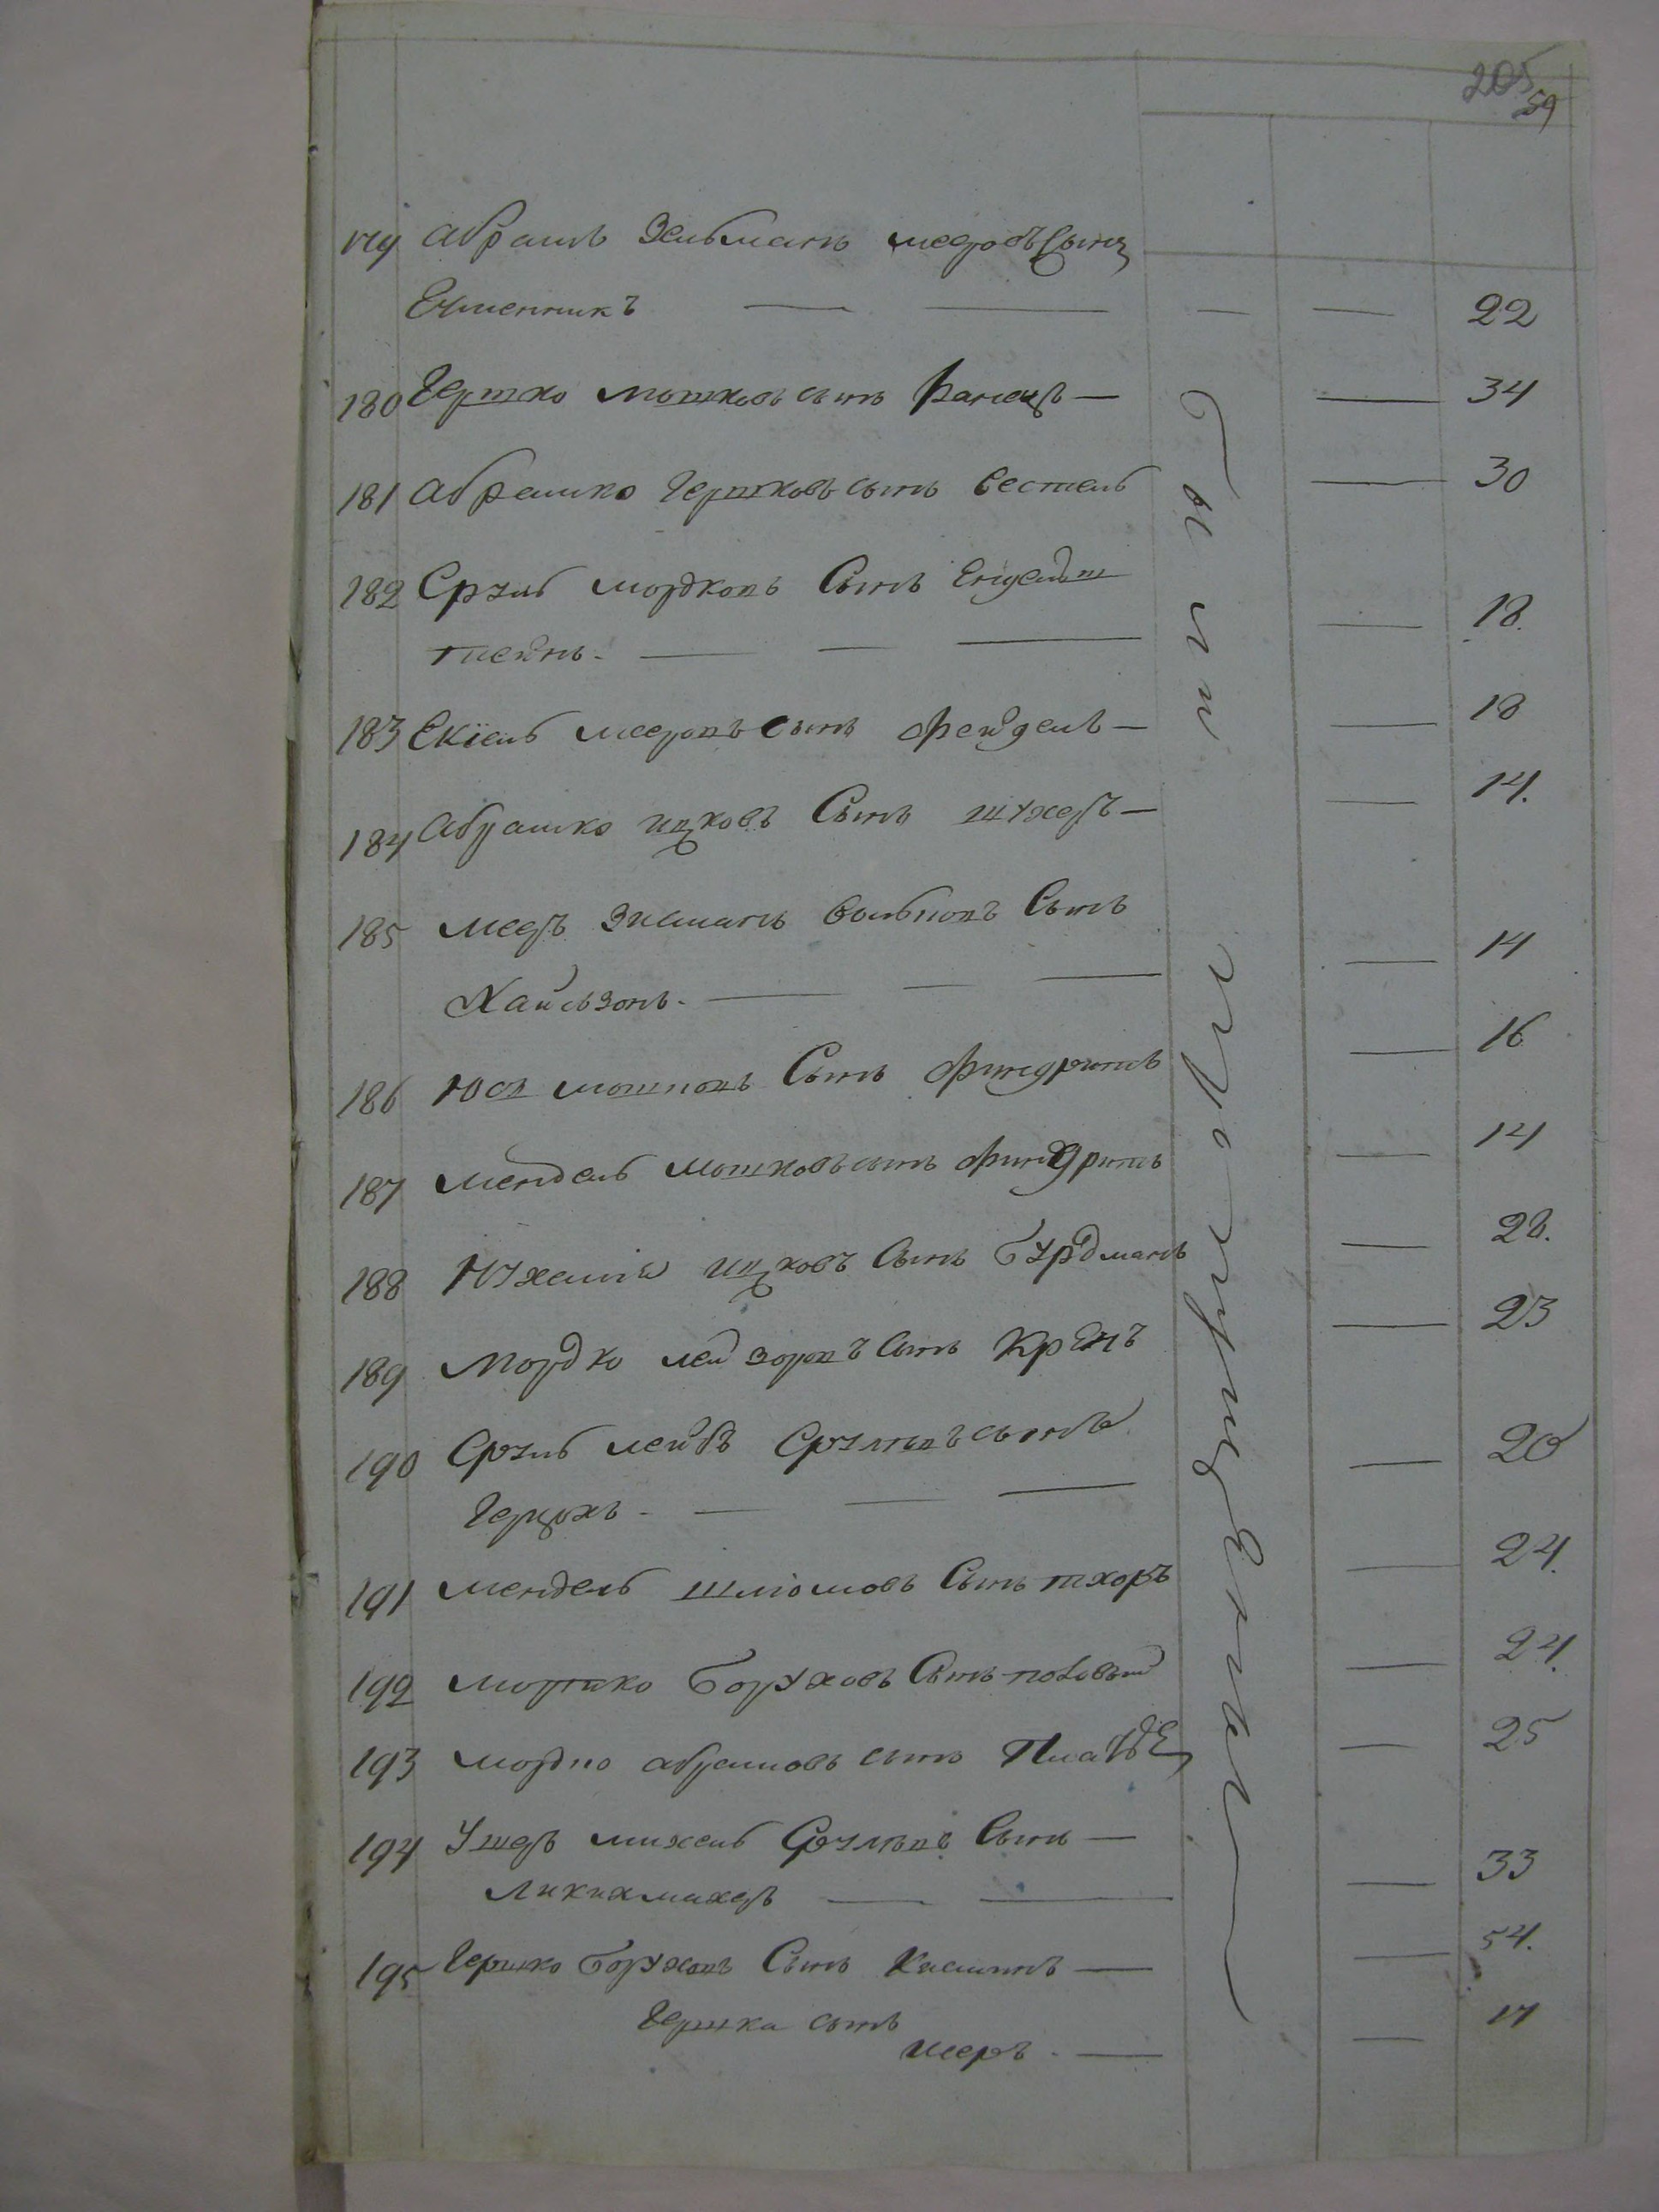 205
59
179 Абрамъ Зельманъ мееровъ Сынъ
Ечменникъ — — — — 22
180 Гершко мошковъ сынъ Канеръ — — 34
181 Абрашко Гершковъ сынъ Вестель — 30
182 Сруль мордковъ Сынъ Енгельш
тиейнъ. — — — — 18.
183 Екіель мееровъ сынъ Фейдель — — 18
184 Абрашко ицковъ Сынъ шухеръ — — 14.
185 мееръ Зисманъ Вольковъ Сынъ
Хаисьзонъ. — — — — 14
186 Юсь мошковъ Сынъ Финдритъ — 16
187 мендель мошковъ сынъ Финдритъ — 14
188 Юхемия ицковъ Сынъ Бурдманъ — 28.
189 мордко лейзоровъ Сынъ Крейнъ — 23
190 Сруль лейбъ Срулевъ сынъ
Герцохъ. — — — — 20
191 мендель шліомовъ Сынъ тхоръ — 24.
192 мортко Боруховъ Сынъ — 24.
193 мордко абрамовъ сынъ — 25
194 Ушеръ михель Срулевъ Сынъ —
Ликихмахеръ — — — 33
195 Гершко Боруховъ Сынъ — — 54.
Гершка сынъ
мееръ. — — 17